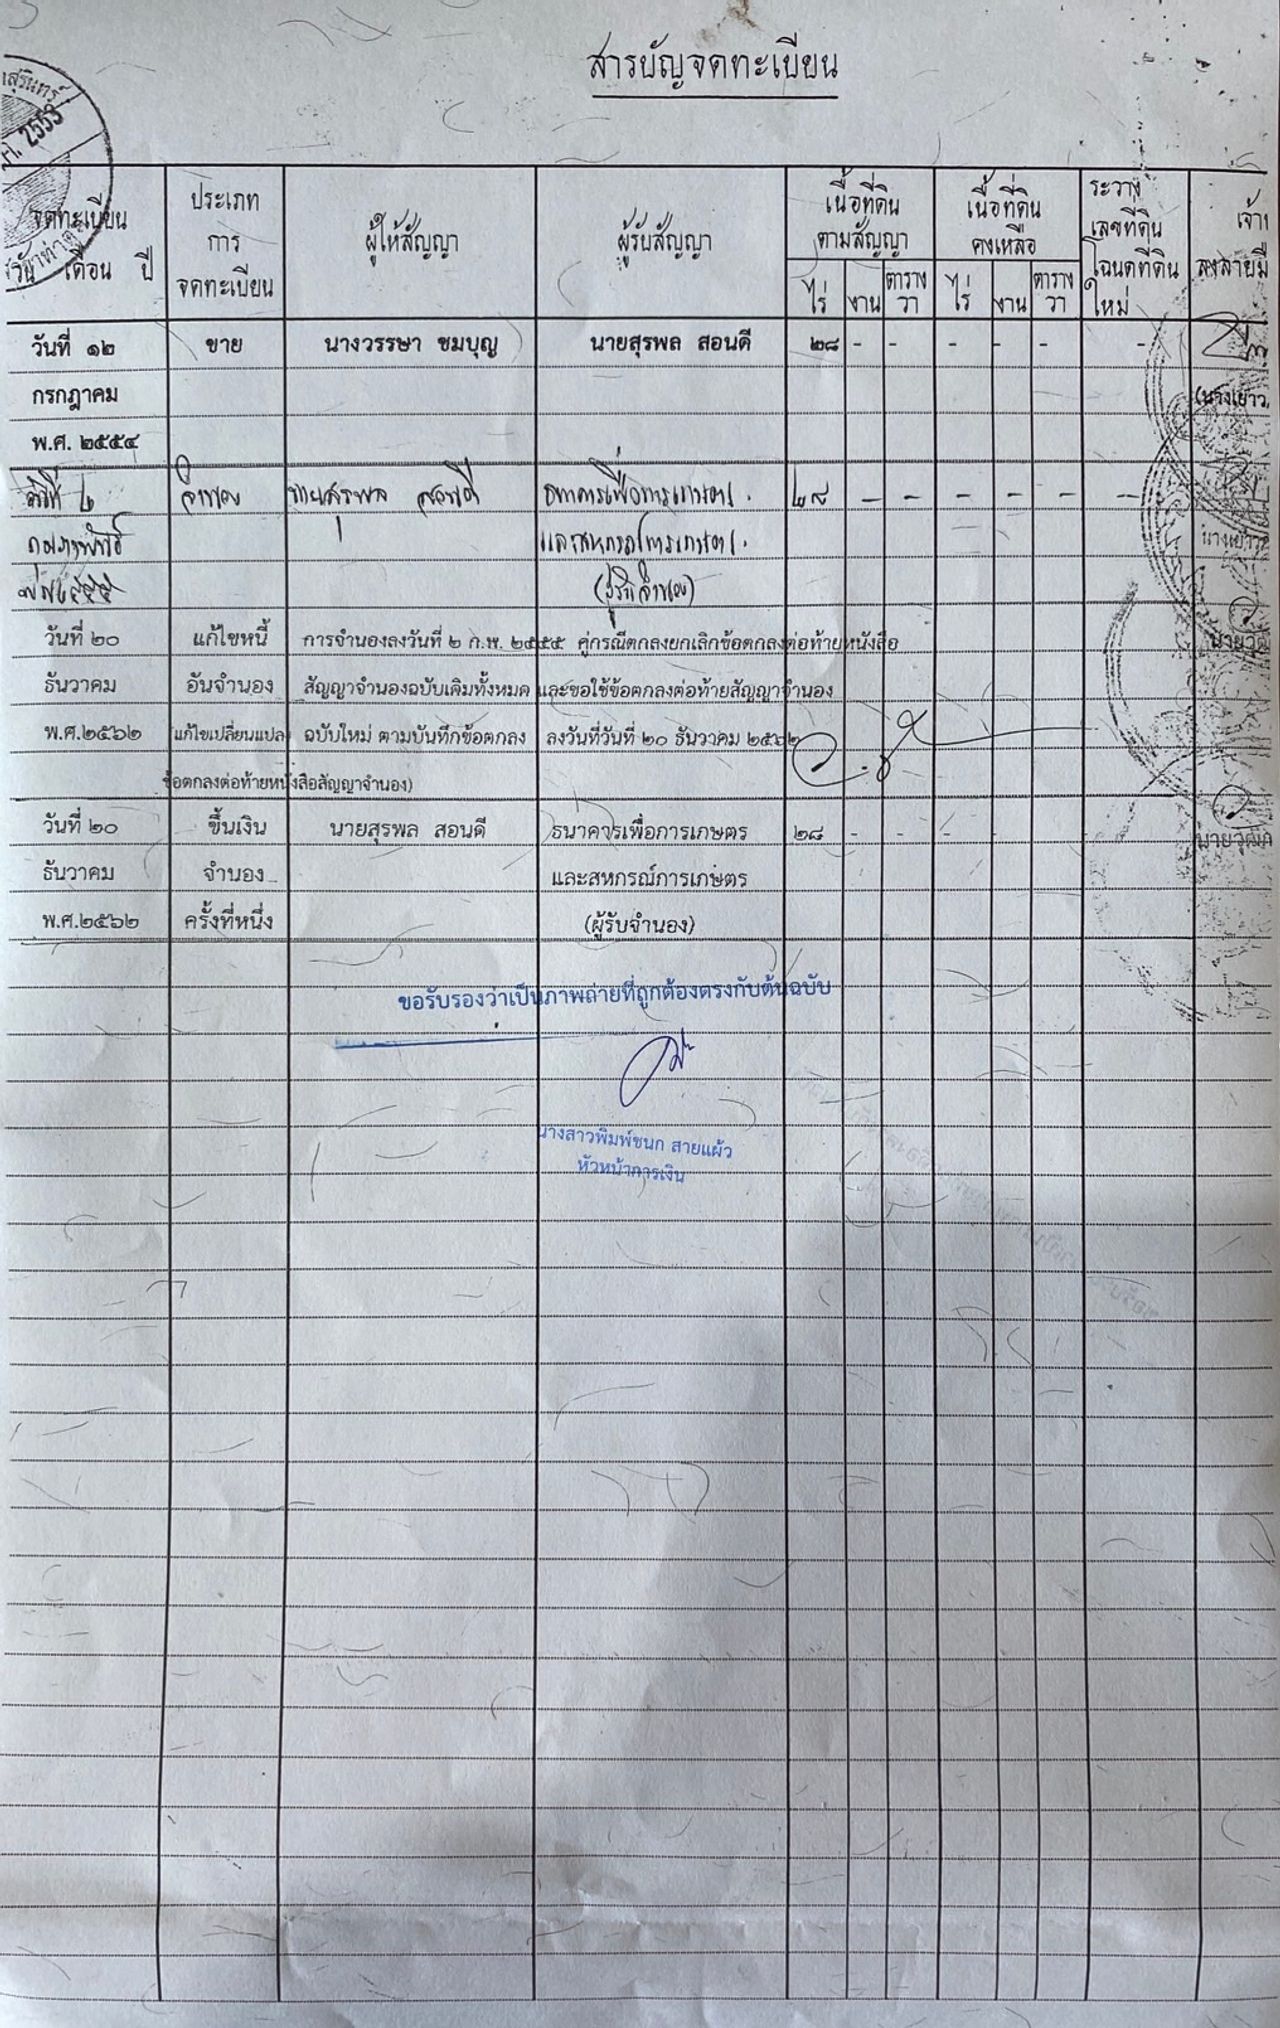 สารบัญจดทะเบียน
สุรินทร์
2553
จดทะเบียน
วัน เดือน ปี
ประเภท
การ
จดทะเบียน
ผู้ให้สัญญา
ผู้รับสัญญา
เนื้อที่ดิน
ตามสัญญา
ไร่ งาน ตาราง
วา
เนื้อที่ดิน
คงเหลือ
ไร่ งาน ตาราง
วา
ระวาง
เลขที่ดิน
โฉนดที่ดิน
ใหม่
เจ้า
ลงลายมื
วันที่ ๑๒ ขาย นางวรรษา ชมบุญ นายสุรพล สอนดี ๒๘ - - - - - -
กรกฎาคม (นางเยาว
พ.ศ. ๒๕๕๔
วันที่ ๒ จำนอง นายสุรพล สอนดี ธนาคารเพื่อการเกษตร ๒๘ - - - - - -
กุมภาพันธ์ และสหกรณ์การเกษตร นางเยาว
พ.ศ.๒๕๕๕ (ผู้รับจำนอง)
วันที่ ๒๐ แก้ไขหนี้ การจำนองลงวันที่ ๒ ก.พ. ๒๕๕๕ คู่กรณีตกลงยกเลิกข้อตกลงต่อท้ายหนังสือ
ธันวาคม อันจำนอง สัญญาจำนองฉบับเดิมทั้งหมด และขอใช้ข้อตกลงต่อท้ายสัญญาจำนอง
พ.ศ.๒๕๖๒ (แก้ไขเปลี่ยนแปลง ฉบับใหม่ ตามบันทึกข้อตกลง ลงวันที่วันที่ ๒๐ ธันวาคม ๒๕๖๒
ข้อตกลงต่อท้ายหนังสือสัญญาจำนอง)
วันที่ ๒๐ ขึ้นเงิน นายสุรพล สอนดี ธนาคารเพื่อการเกษตร ๒๘ - - - - - - นายวุฒิ
ธันวาคม จำนอง และสหกรณ์การเกษตร
พ.ศ.๒๕๖๒ ครั้งที่หนึ่ง (ผู้รับจำนอง)
ขอรับรองว่าเป็นภาพถ่ายที่ถูกต้องตรงกับต้นฉบับ
นางสาวพิมพ์ชนก สายแผ้ว
หัวหน้าการเงิน